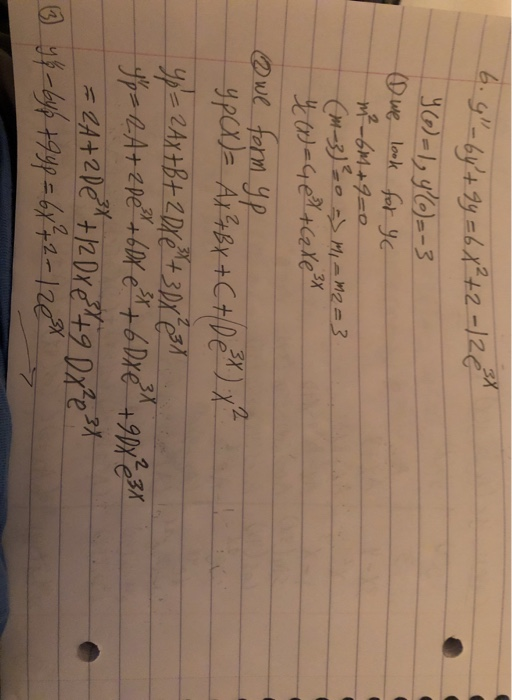 6. y'' - 6y' + 9y = 6x² + 2 - 12e³ˣ
y(0) = 1, y'(0) = -3
① we look for yc
m² - 6m + 9 = 0
(m-3)² = 0 => m₁ = m₂ = 3
yc(x) = c₁e³ˣ + c₂xe³ˣ
② we form yp
yp(x) = Ax² + Bx + C + (De³ˣ)x²
yp' = 2Ax + B + 2Dxe³ˣ + 3Dx²e³ˣ
yp'' = 2A + 2De³ˣ + 6Dxe³ˣ + 6Dxe³ˣ + 9Dx²e³ˣ
= 2A + 2De³ˣ + 12Dxe³ˣ + 9Dx²e³ˣ
③ yp'' - 6yp' + 9yp = 6x² + 2 - 12e³ˣ